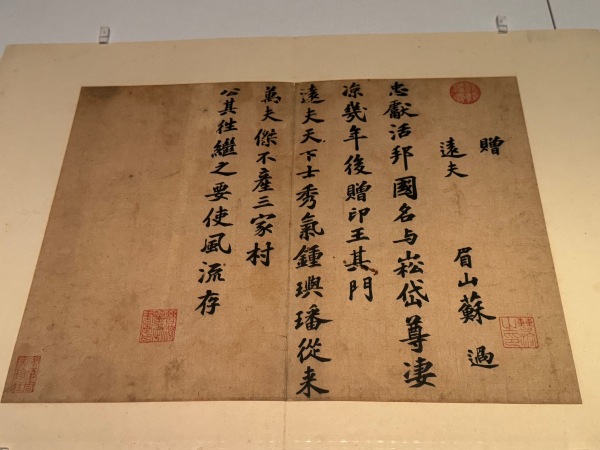 贈
遠夫
眉山蘇過
忠獻活邦國名与崧岱尊凄
涼幾年後贈印王其門
遠夫天下士秀氣鍾璵璠從来
萬夫傑不產三家村
公其往繼之要使風流存